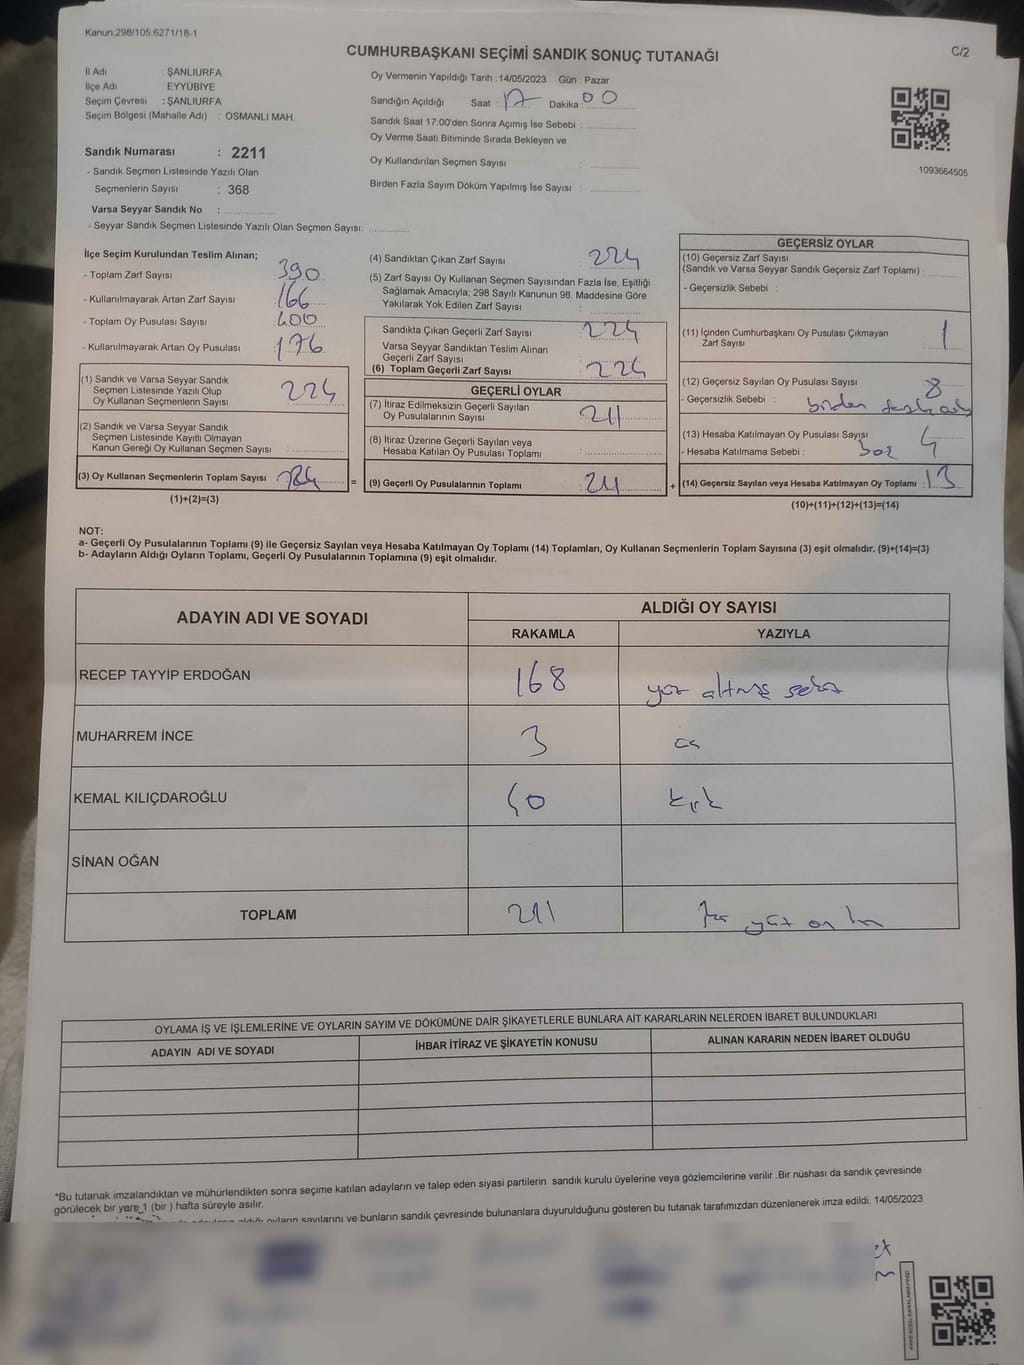 Kanun,298/105,6271/18-1
C/2
CUMHURBAŞKANI SEÇİMİ SANDIK SONUÇ TUTANAĞI
İl Adı : ŞANLIURFA
İlçe Adı : EYYÜBİYE
Seçim Çevresi : ŞANLIURFA
Seçim Bölgesi (Mahalle Adı) : OSMANLI MAH.
Sandık Numarası : 2211
- Sandık Seçmen Listesinde Yazılı Olan
Seçmenlerin Sayısı : 368
Varsa Seyyar Sandık No :
- Seyyar Sandık Seçmen Listesinde Yazılı Olan Seçmen Sayısı:
Oy Vermenin Yapıldığı Tarih : 14/05/2023 Gün : Pazar
Sandığın Açıldığı Saat : 17 Dakika : 00
Sandık Saat 17:00'den Sonra Açımış İse Sebebi :
Oy Verme Saati Bitiminde Sırada Bekleyen ve
Oy Kullandırılan Seçmen Sayısı :
Birden Fazla Sayım Döküm Yapılmış İse Sayısı :
1093664505
İlçe Seçim Kurulundan Teslim Alınan;
- Toplam Zarf Sayısı : 390
- Kullanılmayarak Artan Zarf Sayısı : 166
- Toplam Oy Pusulası Sayısı : 400
- Kullanılmayarak Artan Oy Pusulası : 176
(1) Sandık ve Varsa Seyyar Sandık
Seçmen Listesinde Yazılı Olup
Oy Kullanan Seçmenlerin Sayısı : 224
(2) Sandık ve Varsa Seyyar Sandık
Seçmen Listesinde Kayıtlı Olmayan
Kanun Gereği Oy Kullanan Seçmen Sayısı :
(3) Oy Kullanan Seçmenlerin Toplam Sayısı : 224
(1)+(2)=(3)
(4) Sandıktan Çıkan Zarf Sayısı : 224
(5) Zarf Sayısı Oy Kullanan Seçmen Sayısından Fazla İse, Eşitliği
Sağlamak Amacıyla; 298 Sayılı Kanunun 98. Maddesine Göre
Yakılarak Yok Edilen Zarf Sayısı :
Sandıkta Çıkan Geçerli Zarf Sayısı : 224
Varsa Seyyar Sandıktan Teslim Alınan
Geçerli Zarf Sayısı
(6) Toplam Geçerli Zarf Sayısı : 224
GEÇERLİ OYLAR
(7) İtiraz Edilmeksizin Geçerli Sayılan
Oy Pusulalarının Sayısı : 211
(8) İtiraz Üzerine Geçerli Sayılan veya
Hesaba Katılan Oy Pusulası Toplamı :
= (9) Geçerli Oy Pusulalarının Toplamı : 211
GEÇERSİZ OYLAR
(10) Geçersiz Zarf Sayısı
(Sandık ve Varsa Seyyar Sandık Geçersiz Zarf Toplamı) :
- Geçersizlik Sebebi :
(11) İçinden Cumhurbaşkanı Oy Pusulası Çıkmayan
Zarf Sayısı : 1
(12) Geçersiz Sayılan Oy Pusulası Sayısı : 8
- Geçersizlik Sebebi : birden fazla
(13) Hesaba Katılmayan Oy Pusulası Sayısı : 4
- Hesaba Katılmama Sebebi : boş
+ (14) Geçersiz Sayılan veya Hesaba Katılmayan Oy Toplamı : 13
(10)+(11)+(12)+(13)=(14)
NOT:
a- Geçerli Oy Pusulalarının Toplamı (9) ile Geçersiz Sayılan veya Hesaba Katılmayan Oy Toplamı (14) Toplamları, Oy Kullanan Seçmenlerin Toplam Sayısına (3) eşit olmalıdır. (9)+(14)=(3)
b- Adayların Aldığı Oyların Toplamı, Geçerli Oy Pusulalarının Toplamına (9) eşit olmalıdır.
ADAYIN ADI VE SOYADI
ALDIĞI OY SAYISI
RAKAMLA YAZIYLA
RECEP TAYYİP ERDOĞAN 168 yüz altmış sekiz
MUHARREM İNCE 3 üç
KEMAL KILIÇDAROĞLU 40 kırk
SİNAN OĞAN
TOPLAM 211 İki yüz on bir
OYLAMA İŞ VE İŞLEMLERİNE VE OYLARIN SAYIM VE DÖKÜMÜNE DAİR ŞİKAYETLERLE BUNLARA AİT KARARLARIN NELERDEN İBARET BULUNDUKLARI
ADAYIN ADI VE SOYADI İHBAR İTİRAZ VE ŞİKAYETİN KONUSU ALINAN KARARIN NEDEN İBARET OLDUĞU
*Bu tutanak imzalandıktan ve mühürlendikten sonra seçime katılan adayların ve talep eden siyasi partilerin sandık kurulu üyelerine veya gözlemcilerine verilir .Bir nüshası da sandık çevresinde
görülecek bir yere 1 (bir ) hafta süreyle asılır.
aldığı oyların sayılarını ve bunların sandık çevresinde bulunanlara duyurulduğunu gösteren bu tutanak tarafımızdan düzenlenerek imza edildi. 14/05/2023